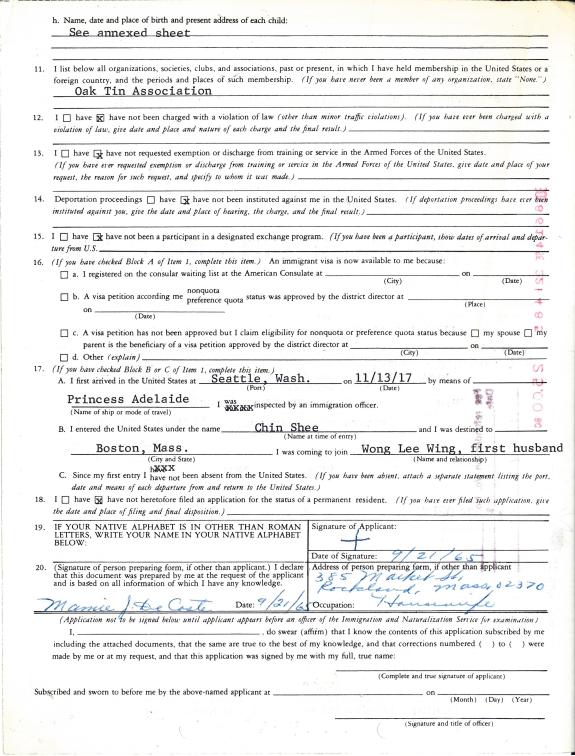 h. Name, date and place of birth and present address of each child:
See annexed sheet
11. I list below all organizations, societies, clubs, and associations, past or present, in which I have held membership in the United States or a
foreign country, and the periods and places of such membership. (If you have never been a member of any organization, state "None.")
Oak Tin Association
12. I ☐ have ☒ have not been charged with a violation of law (other than minor traffic violations). (If you have ever been charged with a
violation of law, give date and place and nature of each charge and the final result.)
13. I ☐ have ☒ have not requested exemption or discharge from training or service in the Armed Forces of the United States.
(If you have ever requested exemption or discharge from training or service in the Armed Forces of the United States, give date and place of your
request, the reason for such request, and specify to whom it was made.)
14. Deportation proceedings ☐ have ☒ have not been instituted against me in the United States. (If deportation proceedings have ever been
instituted against you, give the date and place of hearing, the charge, and the final result.)
15. I ☐ have ☒ have not been a participant in a designated exchange program. (If you have been a participant, show dates of arrival and depar-
ture from U.S.
16. (If you have checked Block A of Item 1, complete this item.) An immigrant visa is now available to me because:
☐ a. I registered on the consular waiting list at the American Consulate at on
(City) (Date)
nonquota
☐ b. A visa petition according me preference quota status was approved by the district director at
(Place)
on
(Date)
☐ c. A visa petition has not been approved but I claim eligibility for nonquota or preference quota status because ☐ my spouse ☐ my
parent is the beneficiary of a visa petition approved by the district director at on
(City) (Date)
☐ d. Other (explain)
17. (If you have checked Block B or C of Item 1, complete this item.)
A. I first arrived in the United States at Seattle, Wash. on 11/13/17 by means of
(Port) (Date)
Princess Adelaide I was inspected by an immigration officer.
(Name of ship or mode of travel)
B. I entered the United States under the name Chin Shee and I was destined to
(Name at time of entry)
Boston, Mass. I was coming to join Wong Lee Wing, first husband
(City and State) (Name and relationship)
C. Since my first entry I have not been absent from the United States. (If you have been absent, attach a separate statement listing the port,
date and means of each departure from and return to the United States.)
18. I ☐ have ☒ have not heretofore filed an application for the status of a permanent resident. (If you have ever filed such application, give
the date and place of filing and final disposition.)
19. IF YOUR NATIVE ALPHABET IS IN OTHER THAN ROMAN
LETTERS, WRITE YOUR NAME IN YOUR NATIVE ALPHABET
BELOW:
Signature of Applicant:
+
Date of Signature: 9/21/65
20. (Signature of person preparing form, if other than applicant.) I declare
that this document was prepared by me at the request of the applicant
and is based on all information of which I have any knowledge.
Mamie J DeCoste Date: 9/21/65
Address of person preparing form, if other than applicant
385 Market St.
Rockland, Mass, 02370
Occupation: Housewife
(Application not to be signed below until applicant appears before an officer of the Immigration and Naturalization Service for examination)
I, , do swear (affirm) that I know the contents of this application subscribed by me
including the attached documents, that the same are true to the best of my knowledge, and that corrections numbered ( ) to ( ) were
made by me or at my request, and that this application was signed by me with my full, true name:
(Complete and true signature of applicant)
Subscribed and sworn to before me by the above-named applicant at on
(Month) (Day) (Year)
(Signature and title of officer)